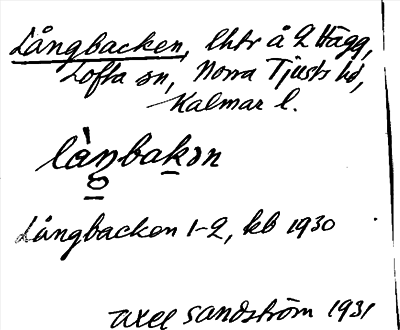 Långbacken, lhtr å 2 Hägg,
Lofta sn, Norra Tjusts hd,
Kalmar l.
làn̥bakən
Långbacken 1-2, kb 1930
Axel Sandström 1931